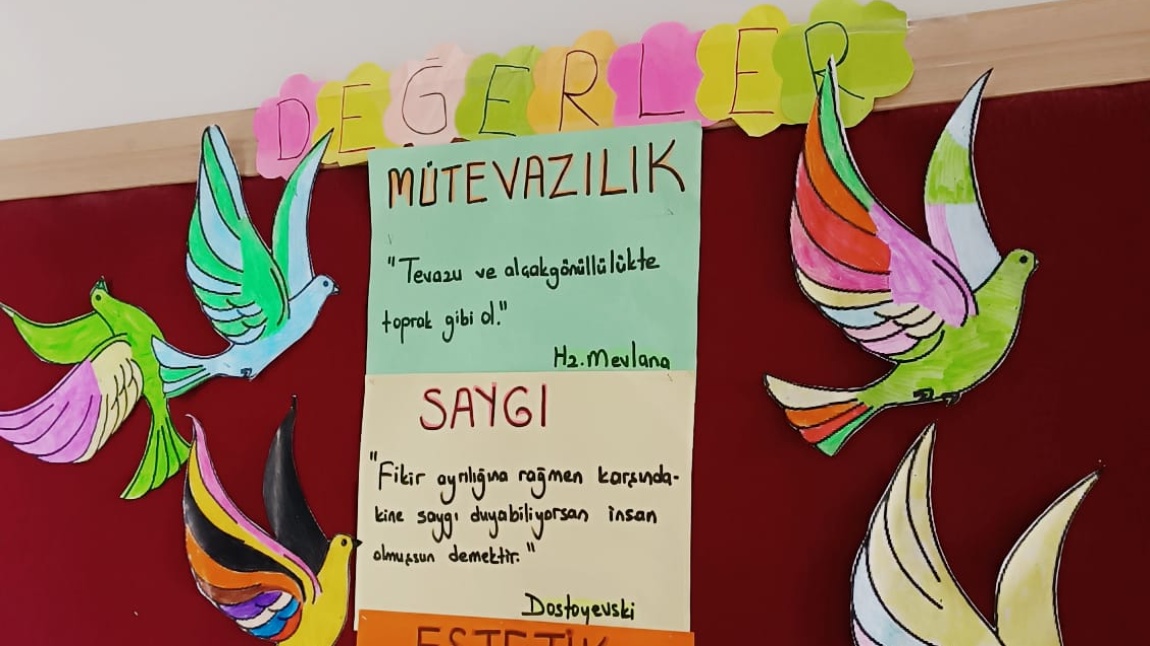 DEĞERLER
MÜTEVAZILIK
"Tevazu ve alçakgönüllülükte
toprak gibi ol."
Hz. Mevlana
SAYGI
"Fikir ayrılığına rağmen karşında-
kine saygı duyabiliyorsan insan
olmuşsun demektir."
Dostoyevski
ESTETİK